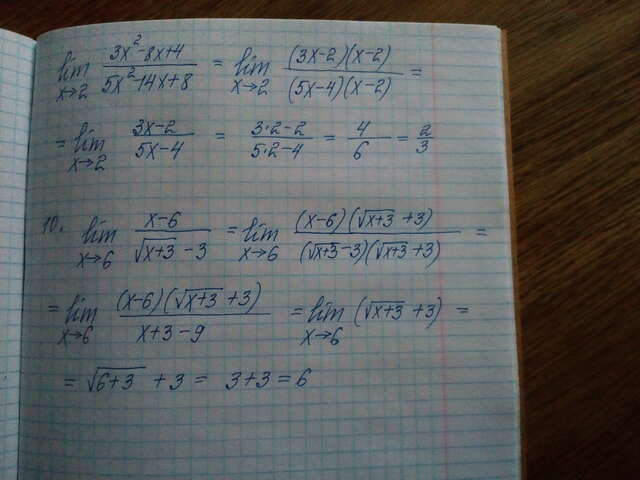 lim x→2 (3x²-8x+4)/(5x²-14x+8) = lim x→2 ((3x-2)(x-2))/((5x-4)(x-2)) =
= lim x→2 (3x-2)/(5x-4) = (3·2-2)/(5·2-4) = 4/6 = 2/3
10. lim x→6 (x-6)/(√(x+3) -3) = lim x→6 ((x-6)(√(x+3) +3))/((√(x+3) -3)(√(x+3) +3)) =
= lim x→6 ((x-6)(√(x+3) +3))/(x+3-9) = lim x→6 (√(x+3) +3) =
= √(6+3) +3 = 3+3 = 6